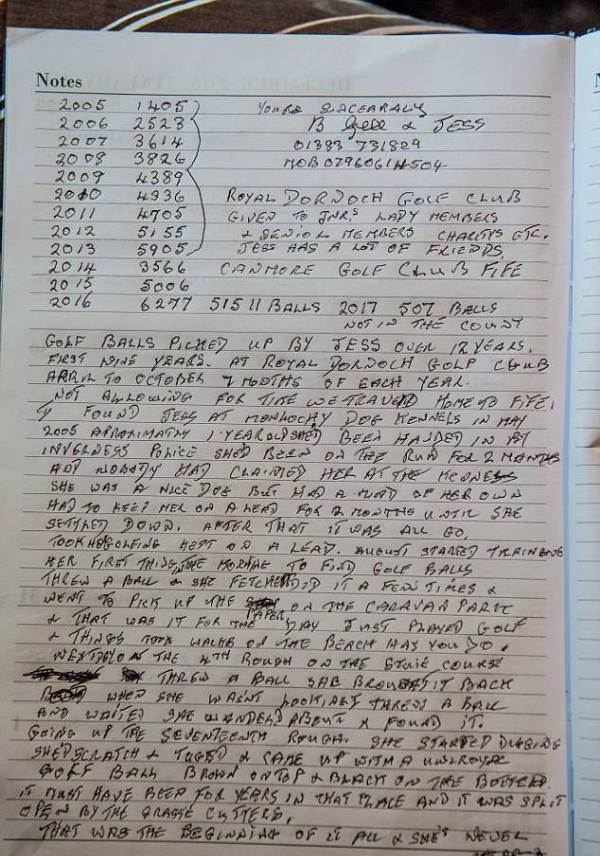 Notes
2005 1405 Yours Sincearaly
2006 2523 B & JESS
2007 3614 01383 731829
2008 3826 MOB 07960614504
2009 4389
2010 4936 ROYAL DORNOCH GOLF CLUB
2011 4705 GIVEN TO JNRS LADY MEMBERS
2012 5155 & SENIOR MEMBERS CHARITYS ETC.
2013 5905 JESS HAS A LOT OF FRIENDS.
2014 3566 CANMORE GOLF CLUB FIFE
2015 5006
2016 6277 51511 BALLS 2017 507 BALLS
NOT IN THE COUNT
GOLF BALLS PICKED UP BY JESS OVER 12 YEARS.
FIRST NINE YEARS. AT ROYAL DORNOCH GOLF CLUB
APRIL TO OCTOBER 7 MONTHS OF EACH YEAR.
NOT ALLOWING FOR TIME WE TRAVED HOME TO FIFE.
I FOUND JESS AT MONLOCHY DOG KENNELS IN MAY
2005 APROXIMATLY 1 YEAR OLD SHED BEEN HANDED IN BY
INVERNESS POLICE SHED BEEN ON THE RUN FOR 2 MONTHS
AND NOBODY HAD CLAIMED HER AT THE KENNELS
SHE WAS A NICE DOG BUT HAD A MIND OF HER OWN
HAD TO KEEP HER ON A LEAD FOR 2 MONTHS UNTIL SHE
SETTLED DOWN. AFTER THAT IT WAS ALL GO.
TOOK HER GOLFING KEPT ON A LEAD. AUGUST STARTED TRAINING
HER FIRST THING IN THE MORNING TO FIND GOLF BALLS
THREW A BALL & SHE FETCHED DID IT A FEW TIMES &
WENT TO PICK UP THE PAPER ON THE CARAVAN PARK
& THAT WAS IT FOR THE DAY JUST PLAYED GOLF
& THINGS TOOK WALKS ON THE BEACH HAS YOU DO.
NEXT DAY ON THE 4TH ROUGH ON THE STRUIE COURSE
THREW A BALL SHE BROUGHT IT BACK
WHEN SHE WASNT LOOKING THREW A BALL
AND WAITED SHE WANDERD ABOUT & FOUND IT.
GOING UP THE SEVENTEENTH ROUGH. SHE STARTED DIGGING
SHED SCRATCH & TUGED & CAME UP WITH A UNIROYAL
GOLF BALL BROWN ON TOP & BLACK ON THE BOTTOM.
IT MUST HAVE BEEN FOR YEARS IN THAT PLACE AND IT WAS SPLIT
OPEN BY THE GRASS CUTTERS.
THAT WAS THE BEGINNING OF IT ALL & SHE'S NEVER